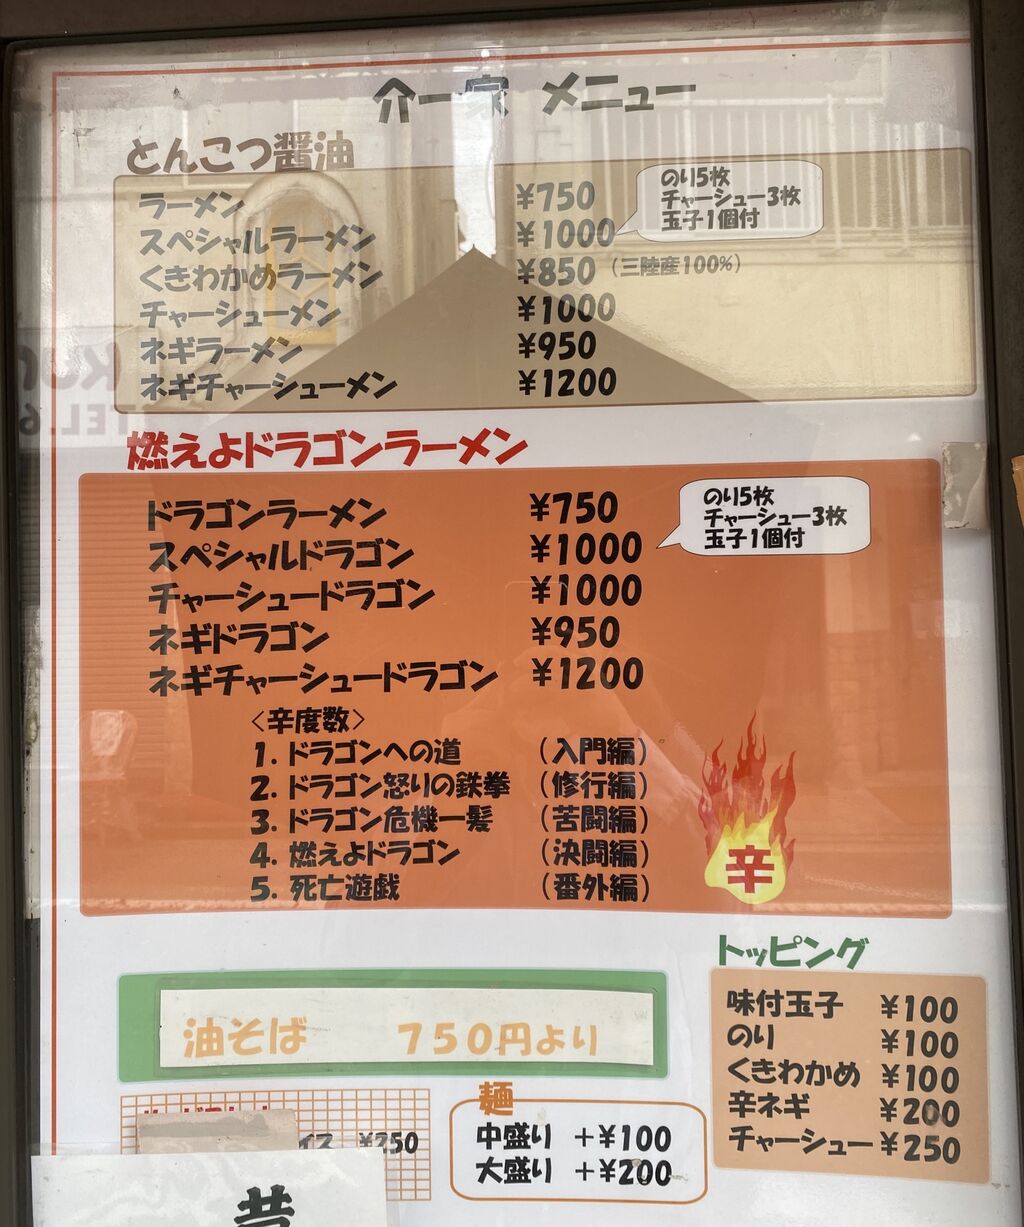 介一家 メニュー
とんこつ醤油
ラーメン ¥750
スペシャルラーメン ¥1000
のり5枚
チャーシュー3枚
玉子1個付
くきわかめラーメン ¥850 (三陸産100%)
チャーシューメン ¥1000
ネギラーメン ¥950
ネギチャーシューメン ¥1200
燃えよドラゴンラーメン
ドラゴンラーメン ¥750
スペシャルドラゴン ¥1000
のり5枚
チャーシュー3枚
玉子1個付
チャーシュードラゴン ¥1000
ネギドラゴン ¥950
ネギチャーシュードラゴン ¥1200
<辛度数>
1. ドラゴンへの道 (入門編)
2. ドラゴン怒りの鉄拳 (修行編)
3. ドラゴン危機一髪 (苦闘編)
4. 燃えよドラゴン (決闘編)
5. 死亡遊戯 (番外編)
辛
油そば 750円より
トッピング
味付玉子 ¥100
のり ¥100
くきわかめ ¥100
辛ネギ ¥200
チャーシュー ¥250
イス ¥250
麺
中盛り +¥100
大盛り +¥200
昔